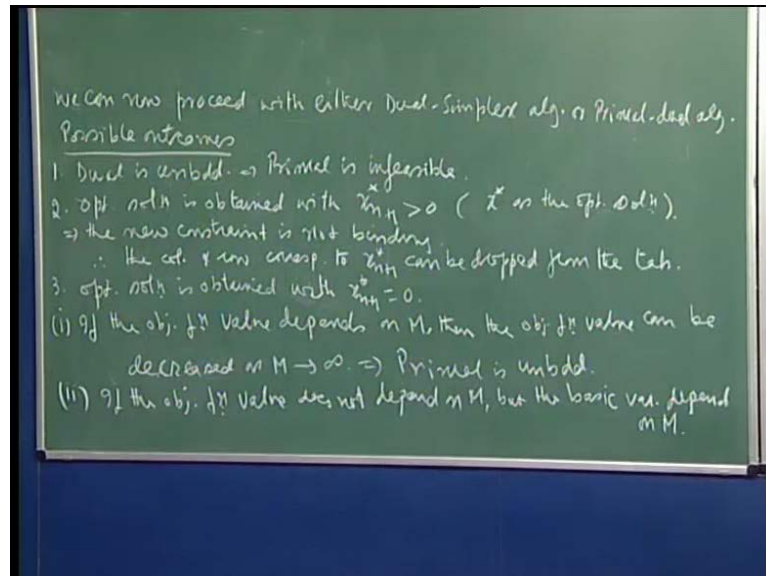 We can now proceed with either Dual-Simplex alg. or Primal-dual alg.
Possible outcomes
1. Dual is unbdd. ⇒ Primal is infeasible.
2. Opt. soln is obtained with x*ₙ₊₁ > 0 ( x* as the opt. soln).
⇒ the new constraint is not binding.
∴ the col. & row corresp. to x*ₙ₊₁ can be dropped from the tab.
3. opt. soln is obtained with x*ₙ₊₁ = 0.
(i) If the obj. fn value depends on M, then the obj. fn value can be
decreased as M → ∞. ⇒ Primal is unbdd.
(ii) If the obj. fn value does not depend on M, but the basic var. depend
on M.